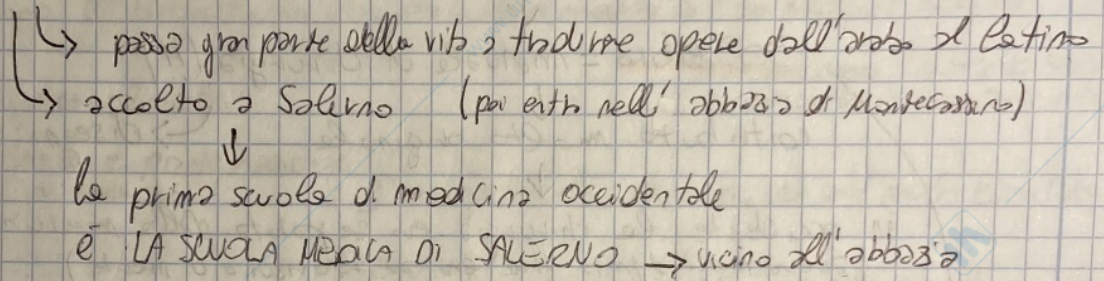 ↳ passa gran parte della vita a tradurre opere dall'arabo al latino
↳ accolto a Salerno (poi entra nell'abbazia di Montecassino)
↓
la prima scuola di medicina occidentale
è LA SCUOLA MEDICA DI SALERNO → vicino all'abbazia